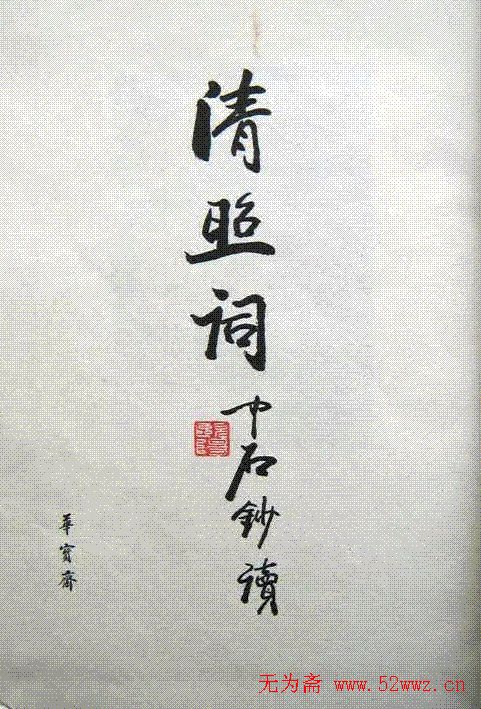 清照词
中石鈔讀
華寶齋
无为斋 www.52wwz.cn